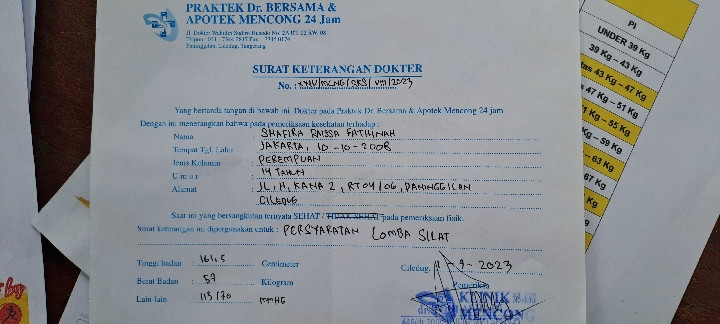 PRAKTEK Dr. BERSAMA &
APOTEK MENCONG 24 Jam
Jl. Dokter Wahidin Sudiro Husodo No. 2A RT. 02 RW. 08
Paninggalan, Ciledug, Tangerang
SURAT KETERANGAN DOKTER
No. /MCNG/SKS/VIII/2023
Yang bertanda tangan di bawah ini, Dokter pada Praktek Dr. Bersama & Apotek Mencong 24 jam
Dengan ini menerangkan bahwa pada pemeriksaan kesehatan terhadap :
Nama : SHAFIRA RAISSA FATIHINAH
Tempat Tgl. Lahir : JAKARTA, 10-10-2008
Jenis Kelamin : PEREMPUAN
Umur : 14 TAHUN
Alamat : JL. H. KANA 2, RT04/06, PANINGGILAN
CILEDUG
Saat ini yang bersangkutan ternyata SEHAT / TIDAK SEHAT pada pemeriksaan fisik.
Surat keterangan ini dipergunakan untuk : PERSYARATAN LOMBA SILAT
Tinggi badan : 161,5 Centimeter
Berat Badan : 57 Kilogram
Lain lain : 115/70 mmHG
Ciledug, -9-2023
Pemeriksa
KLINIK
MENCONG
PI
UNDER 39 Kg
39 Kg – 43 Kg
43 Kg – 47 Kg
47 Kg – 51 Kg
Kg – 55 Kg
Kg – 59 Kg
– 63 Kg
67 Kg
Kg